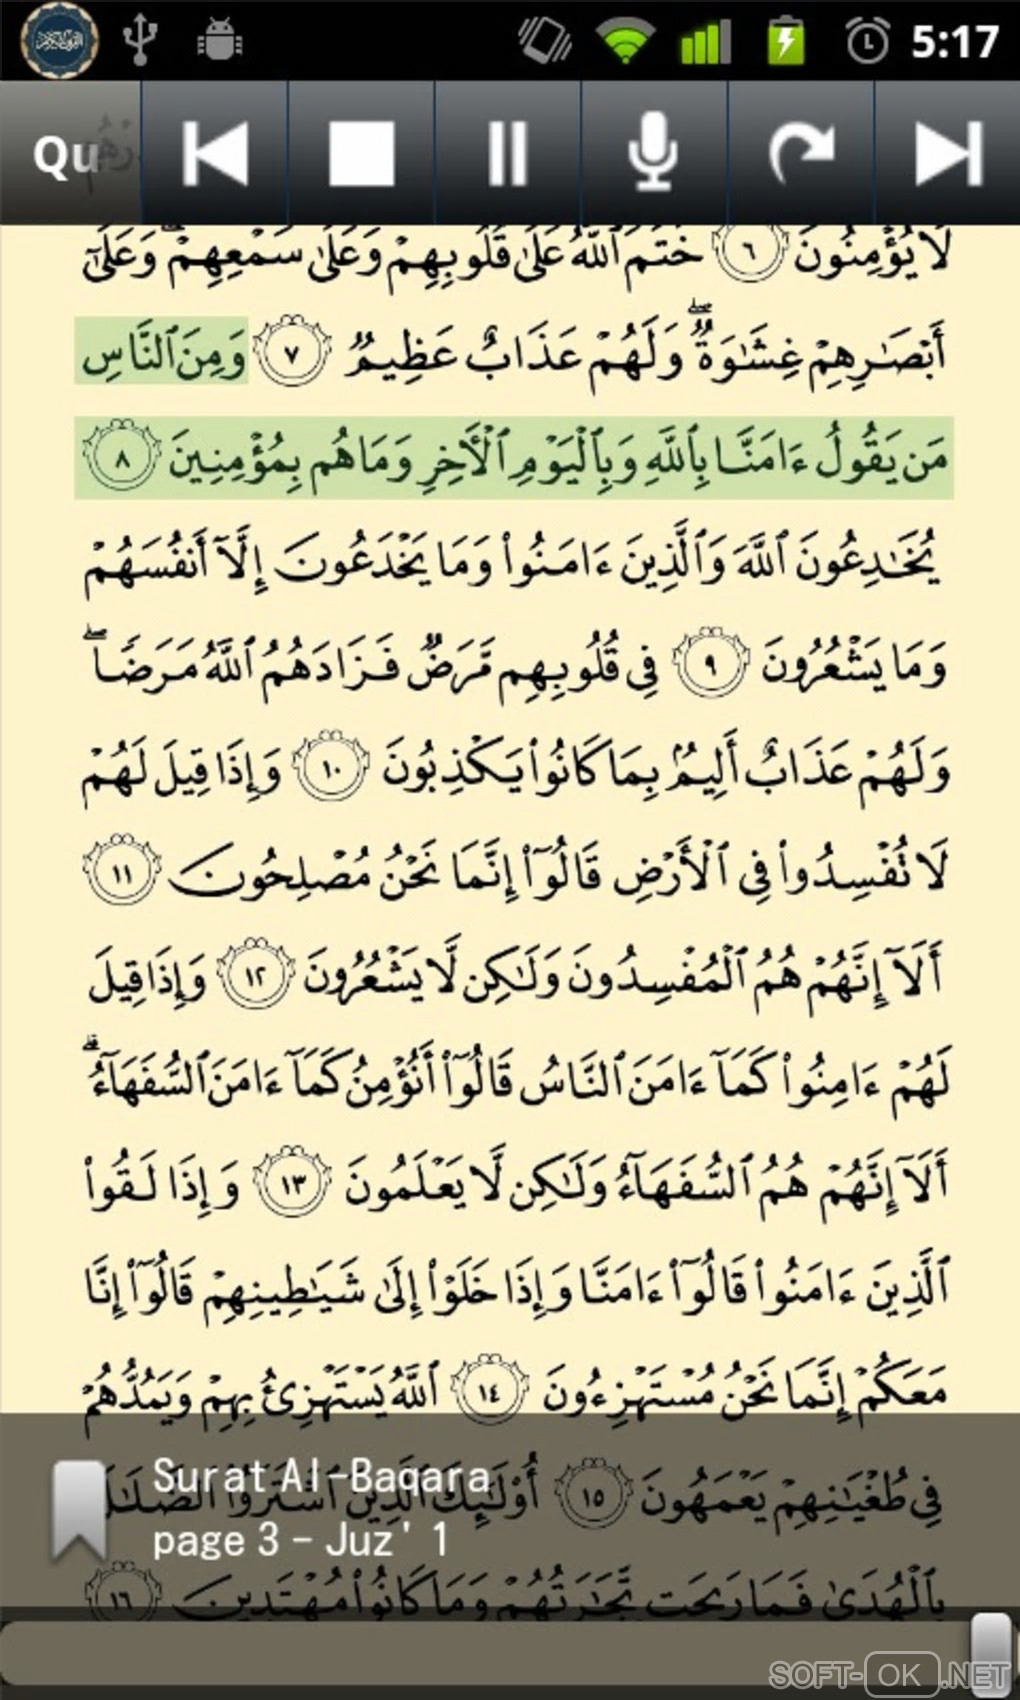 5:17
Qu
لَا يُؤْمِنُونَ ٦ خَتَمَ ٱللَّهُ عَلَىٰ قُلُوبِهِمْ وَعَلَىٰ سَمْعِهِمْ ۖ وَعَلَىٰٓ
أَبْصَـٰرِهِمْ غِشَـٰوَةٌ ۖ وَلَهُمْ عَذَابٌ عَظِيمٌ ٧ وَمِنَ ٱلنَّاسِ
مَن يَقُولُ ءَامَنَّا بِٱللَّهِ وَبِٱلْيَوْمِ ٱلْـَٔاخِرِ وَمَا هُم بِمُؤْمِنِينَ ٨
يُخَـٰدِعُونَ ٱللَّهَ وَٱلَّذِينَ ءَامَنُوا۟ وَمَا يَخْدَعُونَ إِلَّآ أَنفُسَهُمْ
وَمَا يَشْعُرُونَ ٩ فِى قُلُوبِهِم مَّرَضٌ فَزَادَهُمُ ٱللَّهُ مَرَضًا ۖ
وَلَهُمْ عَذَابٌ أَلِيمٌۢ بِمَا كَانُوا۟ يَكْذِبُونَ ١٠ وَإِذَا قِيلَ لَهُمْ
لَا تُفْسِدُوا۟ فِى ٱلْأَرْضِ قَالُوٓا۟ إِنَّمَا نَحْنُ مُصْلِحُونَ ١١
أَلَآ إِنَّهُمْ هُمُ ٱلْمُفْسِدُونَ وَلَـٰكِن لَّا يَشْعُرُونَ ١٢ وَإِذَا قِيلَ
لَهُمْ ءَامِنُوا۟ كَمَآ ءَامَنَ ٱلنَّاسُ قَالُوٓا۟ أَنُؤْمِنُ كَمَآ ءَامَنَ ٱلسُّفَهَآءُ ۗ
أَلَآ إِنَّهُمْ هُمُ ٱلسُّفَهَآءُ وَلَـٰكِن لَّا يَعْلَمُونَ ١٣ وَإِذَا لَقُوا۟
ٱلَّذِينَ ءَامَنُوا۟ قَالُوٓا۟ ءَامَنَّا وَإِذَا خَلَوْا۟ إِلَىٰ شَيَـٰطِينِهِمْ قَالُوٓا۟ إِنَّا
مَعَكُمْ إِنَّمَا نَحْنُ مُسْتَهْزِءُونَ ١٤ ٱللَّهُ يَسْتَهْزِئُ بِهِمْ وَيَمُدُّهُمْ
فِى طُغْيَـٰنِهِمْ يَعْمَهُونَ ١٥ أُو۟لَـٰٓئِكَ ٱلَّذِينَ ٱشْتَرَوُا۟ ٱلضَّلَـٰلَ
Surat Al-Baqara
page 3 - Juz' 1
بِٱلْهُدَىٰ فَمَا رَبِحَت تِّجَـٰرَتُهُمْ وَمَا كَانُوا۟ مُهْتَدِينَ ١٦
SOFT-OK.NET